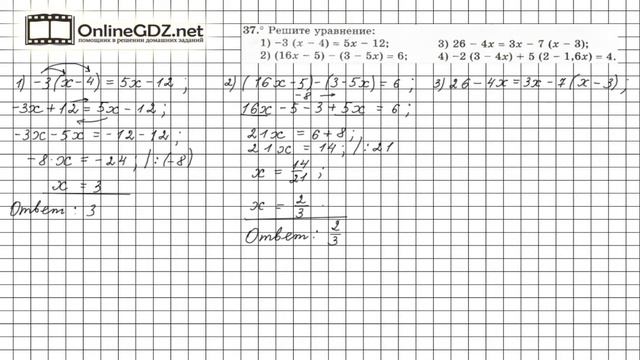 OnlineGDZ.net
помощник в решении домашних заданий
37.° Решите уравнение:
1) −3 (x − 4) = 5x − 12;
2) (16x − 5) − (3 − 5x) = 6;
3) 26 − 4x = 3x − 7 (x − 3);
4) −2 (3 − 4x) + 5 (2 − 1,6x) = 4.
1) −3(x−4) = 5x−12 ;
−3x+12 = 5x−12 ;
−3x−5x = −12−12 ;
−8·x = −24 ; |:(−8)
x = 3
Ответ: 3
2) (16x−5)−(3−5x) = 6 ;
−8
16x−5−3+5x = 6 ;
21x = 6+8 ;
21x = 14 ; |:21
x = 14/21 ;
x = 2/3 .
Ответ: 2/3
3) 26−4x = 3x−7(x−3) ;